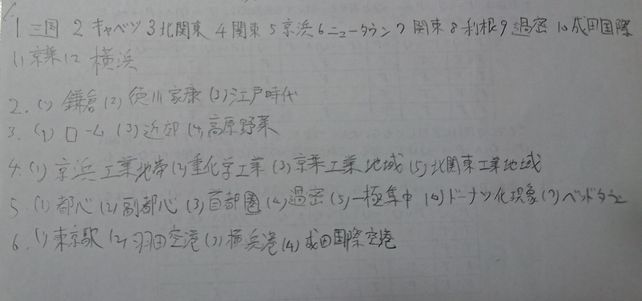 1 三国 2 キャベツ 3 北関東 4 関東 5 京浜 6 ニュータウン 7 関東 8 利根 9 過密 10 成田国際
11 京葉 12 横浜
2. (1) 鎌倉 (2) 徳川家康 (3) 江戸時代
3. (2) ローム (3) 近郊 (4) 高原野菜
4. (1) 京浜工業地帯 (2) 重化学工業 (3) 京葉工業地域 (5) 北関東工業地域
5. (1) 都心 (2) 副都心 (3) 首都圏 (4) 過密 (5) 一極集中 (6) ドーナツ化現象 (7) ベッドタウン
6. (1) 東京駅 (2) 羽田空港 (3) 横浜港 (4) 成田国際空港